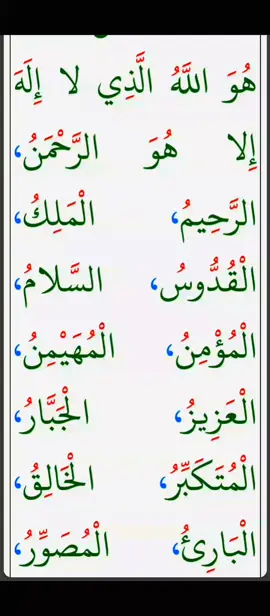 هُوَ اللَّهُ الَّذِي لا إِلَهَ
إِلا هُوَ الرَّحْمَنُ،
الرَّحِيمُ، الْمَلِكُ،
الْقُدُّوسُ، السَّلامُ،
الْمُؤْمِنُ، الْمُهَيْمِنُ،
الْعَزِيزُ، الْجَبَّارُ،
الْمُتَكَبِّرُ، الْخَالِقُ،
الْبَارِئُ، الْمُصَوِّرُ،